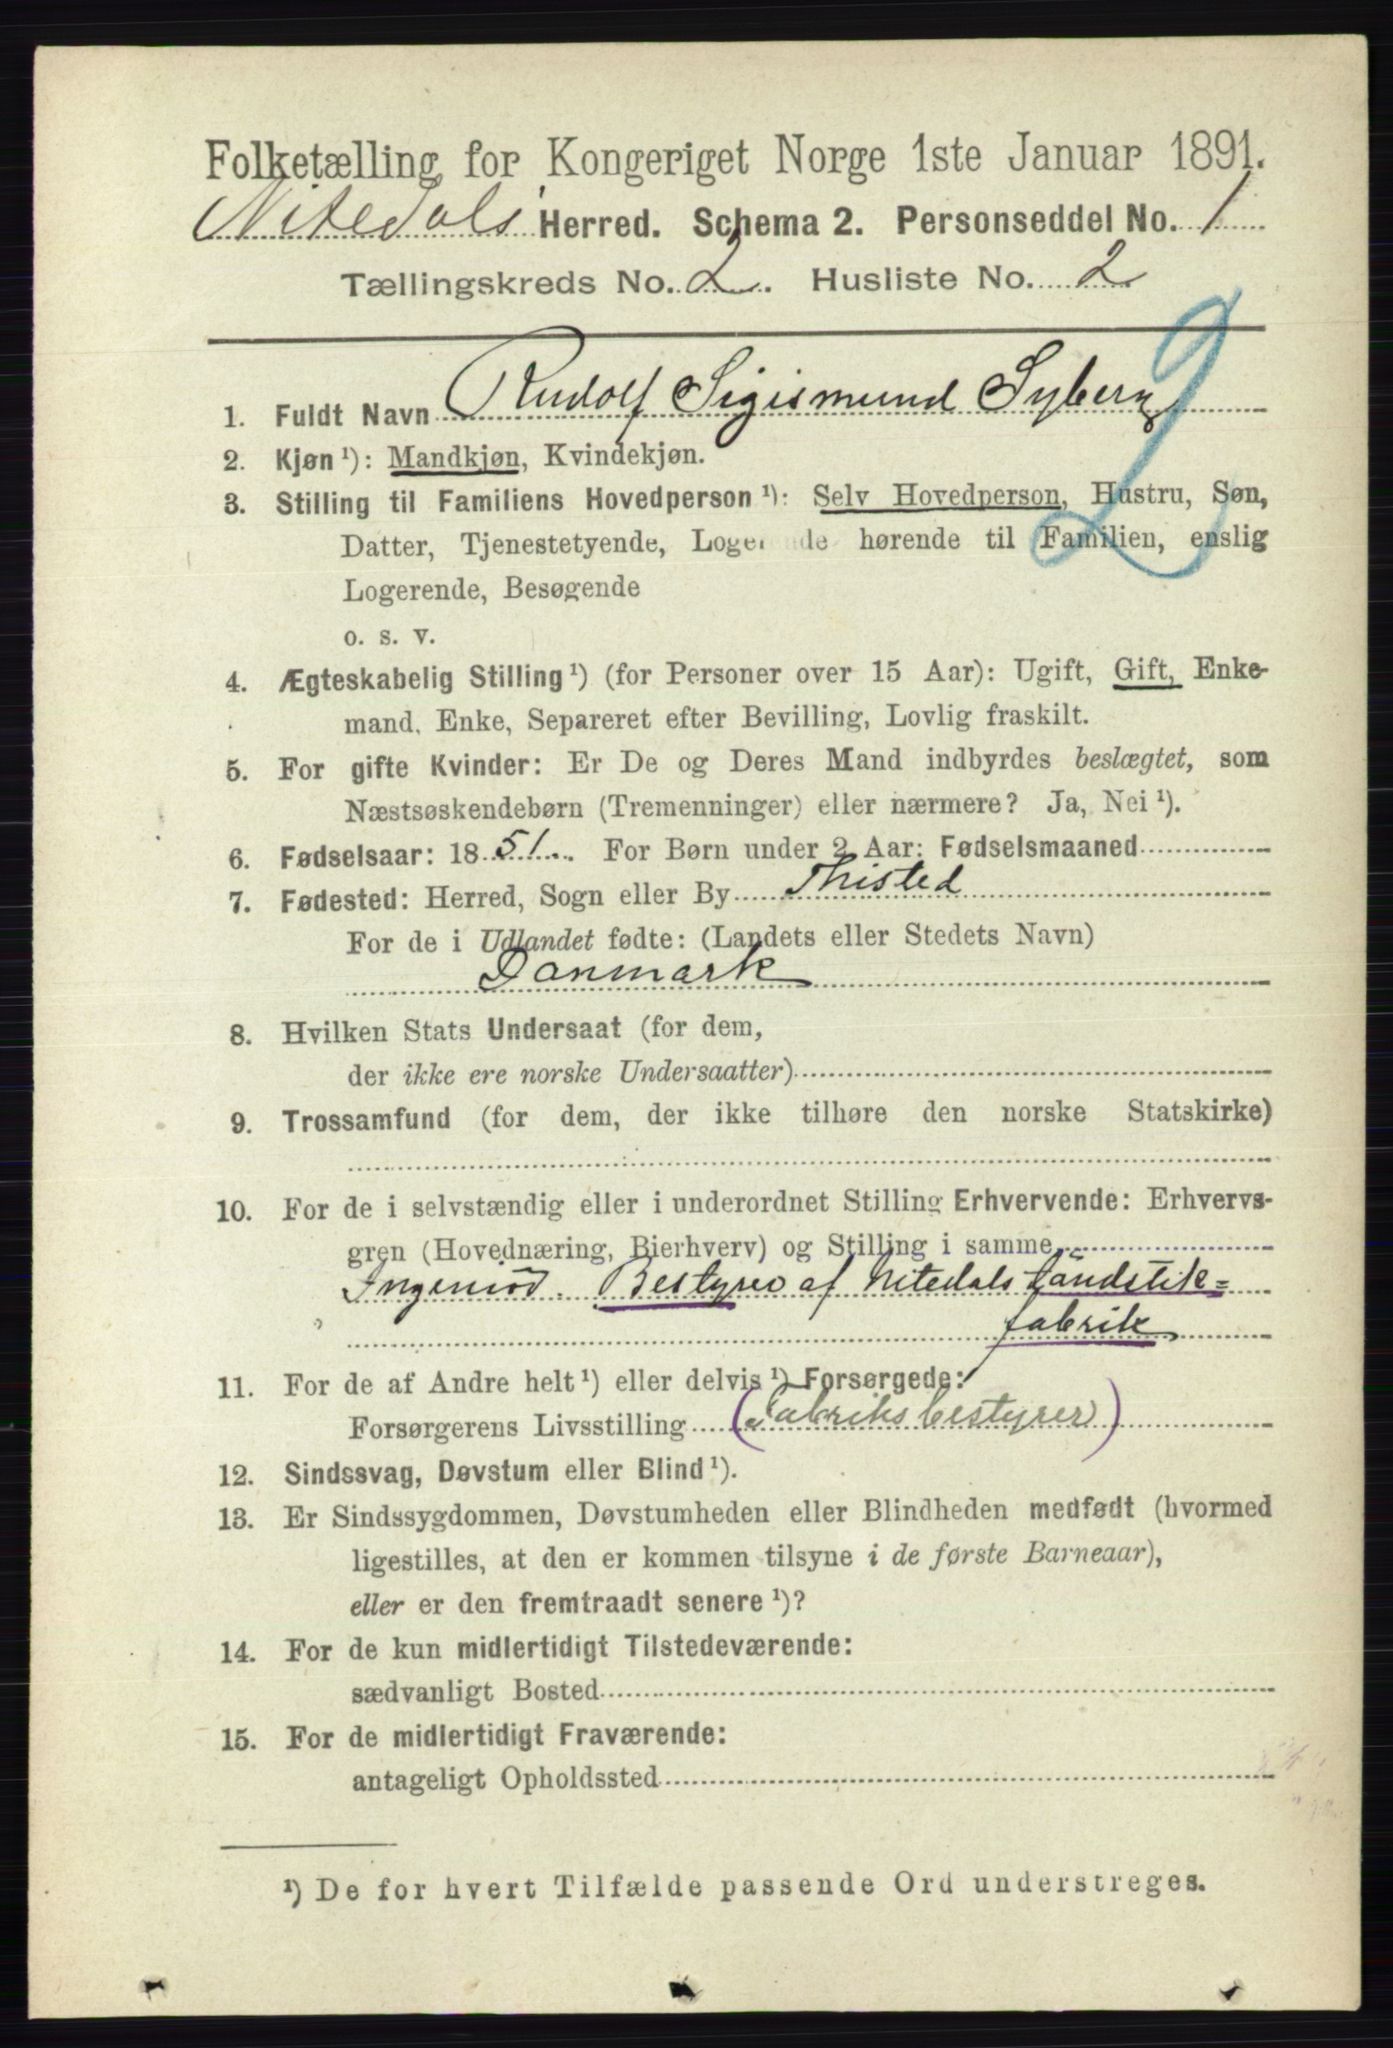 Folketælling for Kongeriget Norge 1ste Januar 1891.
Nitedals Herred. Schema 2. Personseddel No. 1
Tællingskreds No. 2. Husliste No. 2
2
1. Fuldt Navn Rudolf Sigismund Syberg
2. Kjøn ¹): Mandkjøn, Kvindekjøn.
3. Stilling til Familiens Hovedperson ¹): Selv Hovedperson, Hustru, Søn,
Datter, Tjenestetyende, Logerende hørende til Familien, enslig
Logerende, Besøgende
o. s. v.
4. Ægteskabelig Stilling ¹) (for Personer over 15 Aar): Ugift, Gift, Enke-
mand, Enke, Separeret efter Bevilling, Lovlig fraskilt.
5. For gifte Kvinder: Er De og Deres Mand indbyrdes beslægtet, som
Næstsøskendebørn (Tremenninger) eller nærmere? Ja, Nei ¹).
6. Fødselsaar: 1851. For Børn under 2 Aar: Fødselsmaaned
7. Fødested: Herred, Sogn eller By Thisted
For de i Udlandet fødte: (Landets eller Stedets Navn)
Danmark
8. Hvilken Stats Undersaat (for dem,
der ikke ere norske Undersaatter)
9. Trossamfund (for dem, der ikke tilhøre den norske Statskirke)
10. For de i selvstændig eller i underordnet Stilling Erhvervende: Erhvervs-
gren (Hovednæring, Bierhverv) og Stilling i samme
Ingeniør. Bestyrer af Nitedals Tændstik=
fabrik
11. For de af Andre helt ¹) eller delvis ¹) Forsørgede:
Forsørgerens Livsstilling (Fabriksbestyrer)
12. Sindssvag, Døvstum eller Blind ¹).
13. Er Sindssygdommen, Døvstumheden eller Blindheden medfødt (hvormed
ligestilles, at den er kommen tilsyne i de første Barneaar),
eller er den fremtraadt senere ¹)?
14. For de kun midlertidigt Tilstedeværende:
sædvanligt Bosted
15. For de midlertidigt Fraværende:
antageligt Opholdssted
¹) De for hvert Tilfælde passende Ord understreges.